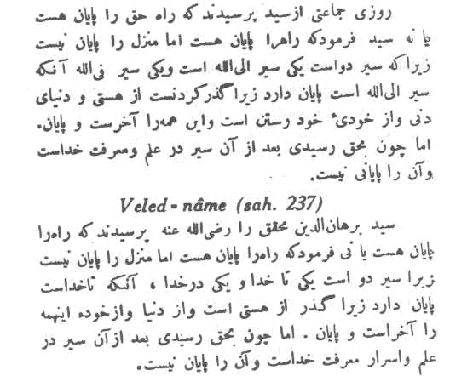 روزی جماعتی از سید پرسیدند که راه حق را پایان هست
یا نه سید فرمود که راه را پایان هست اما منزل را پایان نیست
زیرا که سیر دو است یکی سیر الی‌الله است و یکی سیر فی‌الله آنکه
سیر الی‌الله است پایان دارد زیرا گذر کردنست از هستی و دنیای
دنی و از خودیٔ خود رستن است و این همه را آخرست و پایان.
اما چون بحق رسیدی بعد از آن سیر در علم و معرفت خداست
و آن را پایانی نیست.
Veled-nâme (sah. 237)
سید برهان‌الدین محقق را رضی‌الله عنه پرسیدند که راه را
پایان هست یا نی فرمود که راه را پایان هست اما منزل را پایان نیست
زیرا سیر دو است یکی تا خدا و یکی در خدا ، آنکه تا خداست
پایان دارد زیرا گذر از هستی است و از دنیا و از خود و اینهمه
را آخر است و پایان . اما چون بحق رسیدی بعد از آن سیر در
علم و اسرار معرفت خداست و آن را پایان نیست.